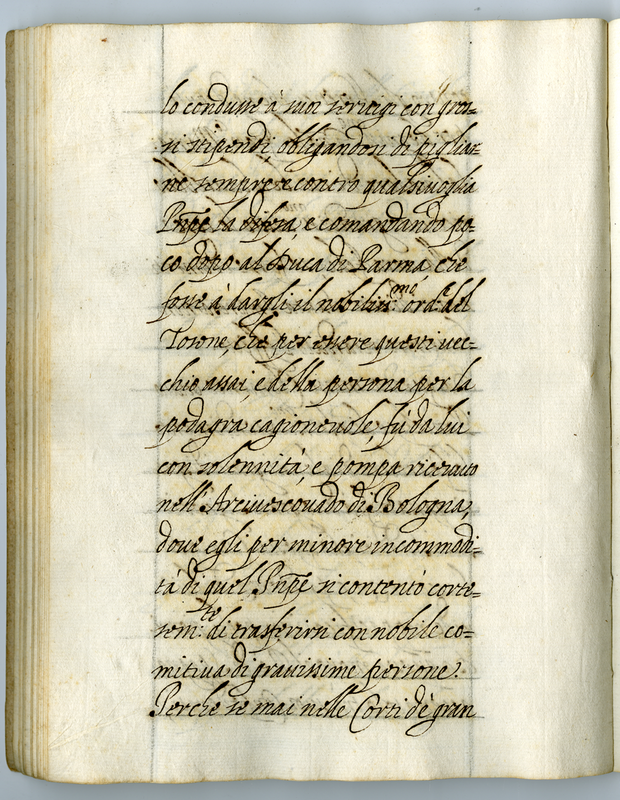 lo condusse à suoi servigi con gros=
si stipendi, obligandosi di pigliar=
ne sempre e contro qualsivoglia
Pnpe la difesa, e comandando po=
co dopo al Duca di Parma, che
fosse à dargli il nobiliss:mo ord:e del
Tosone, che per essere questi vec=
chio assai, e della persona per la
podagra cagionevole, fù da lui
con solennità, e pompa ricevuto
nell'Arcivescovado di Bologna,
dove egli per minore incommodi=
tà di quel Pnpe si contentò corte=
sem:te di trasferirsi con nobile co=
mitiva di gravissime persone.
Perche se mai nelle Corti dè gran